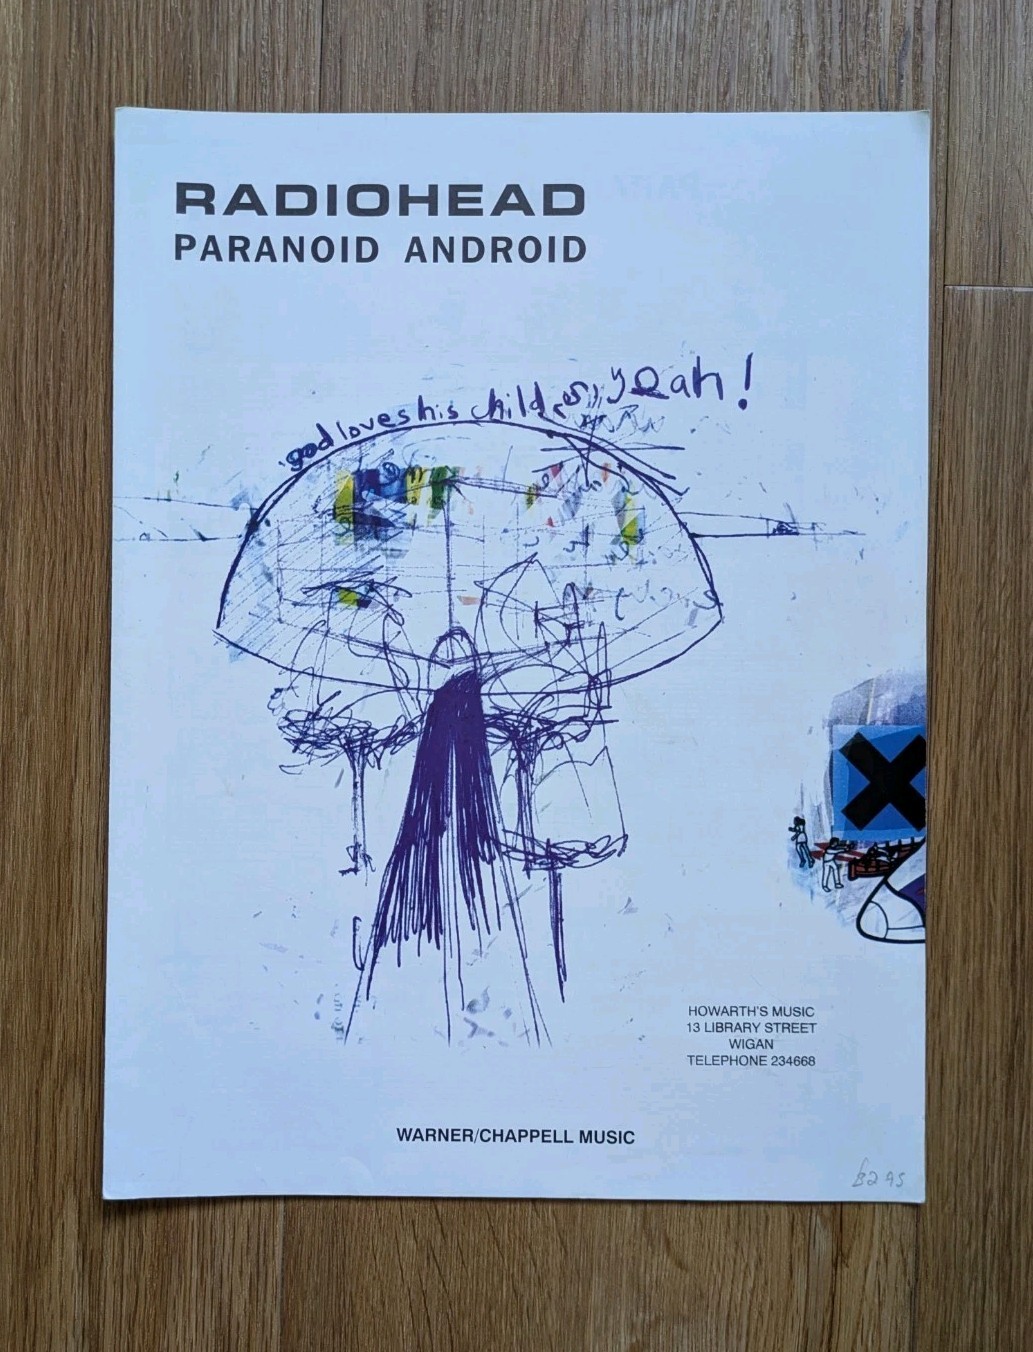 RADIOHEAD
PARANOID ANDROID
god loves his children, yeah!
HOWARTH'S MUSIC
13 LIBRARY STREET
WIGAN
TELEPHONE 234668
WARNER/CHAPPELL MUSIC
£2.95